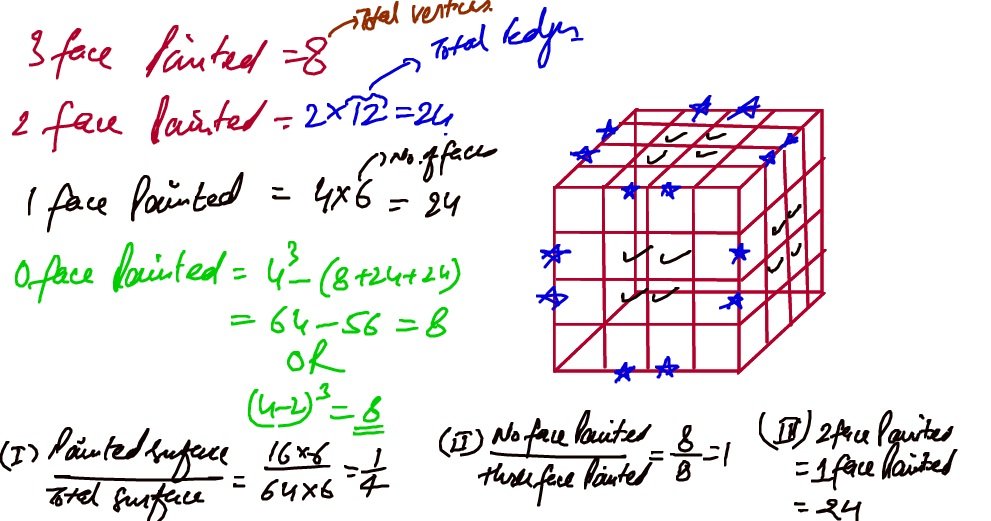 3 face Painted = 8 → Total vertices
2 face Painted = 2×12 = 24 → Total Edges
1 face Painted = 4×6 = 24 → No. of faces
0 face Painted = 4³ - (8+24+24)
= 64 - 56 = 8
OR
(4-2)³ = 8
(I) Painted surface / Total surface = 16×6 / 64×6 = 1/4
(II) No face Painted / three face Painted = 8/8 = 1
(III) 2 face Painted
= 1 face Painted
= 24